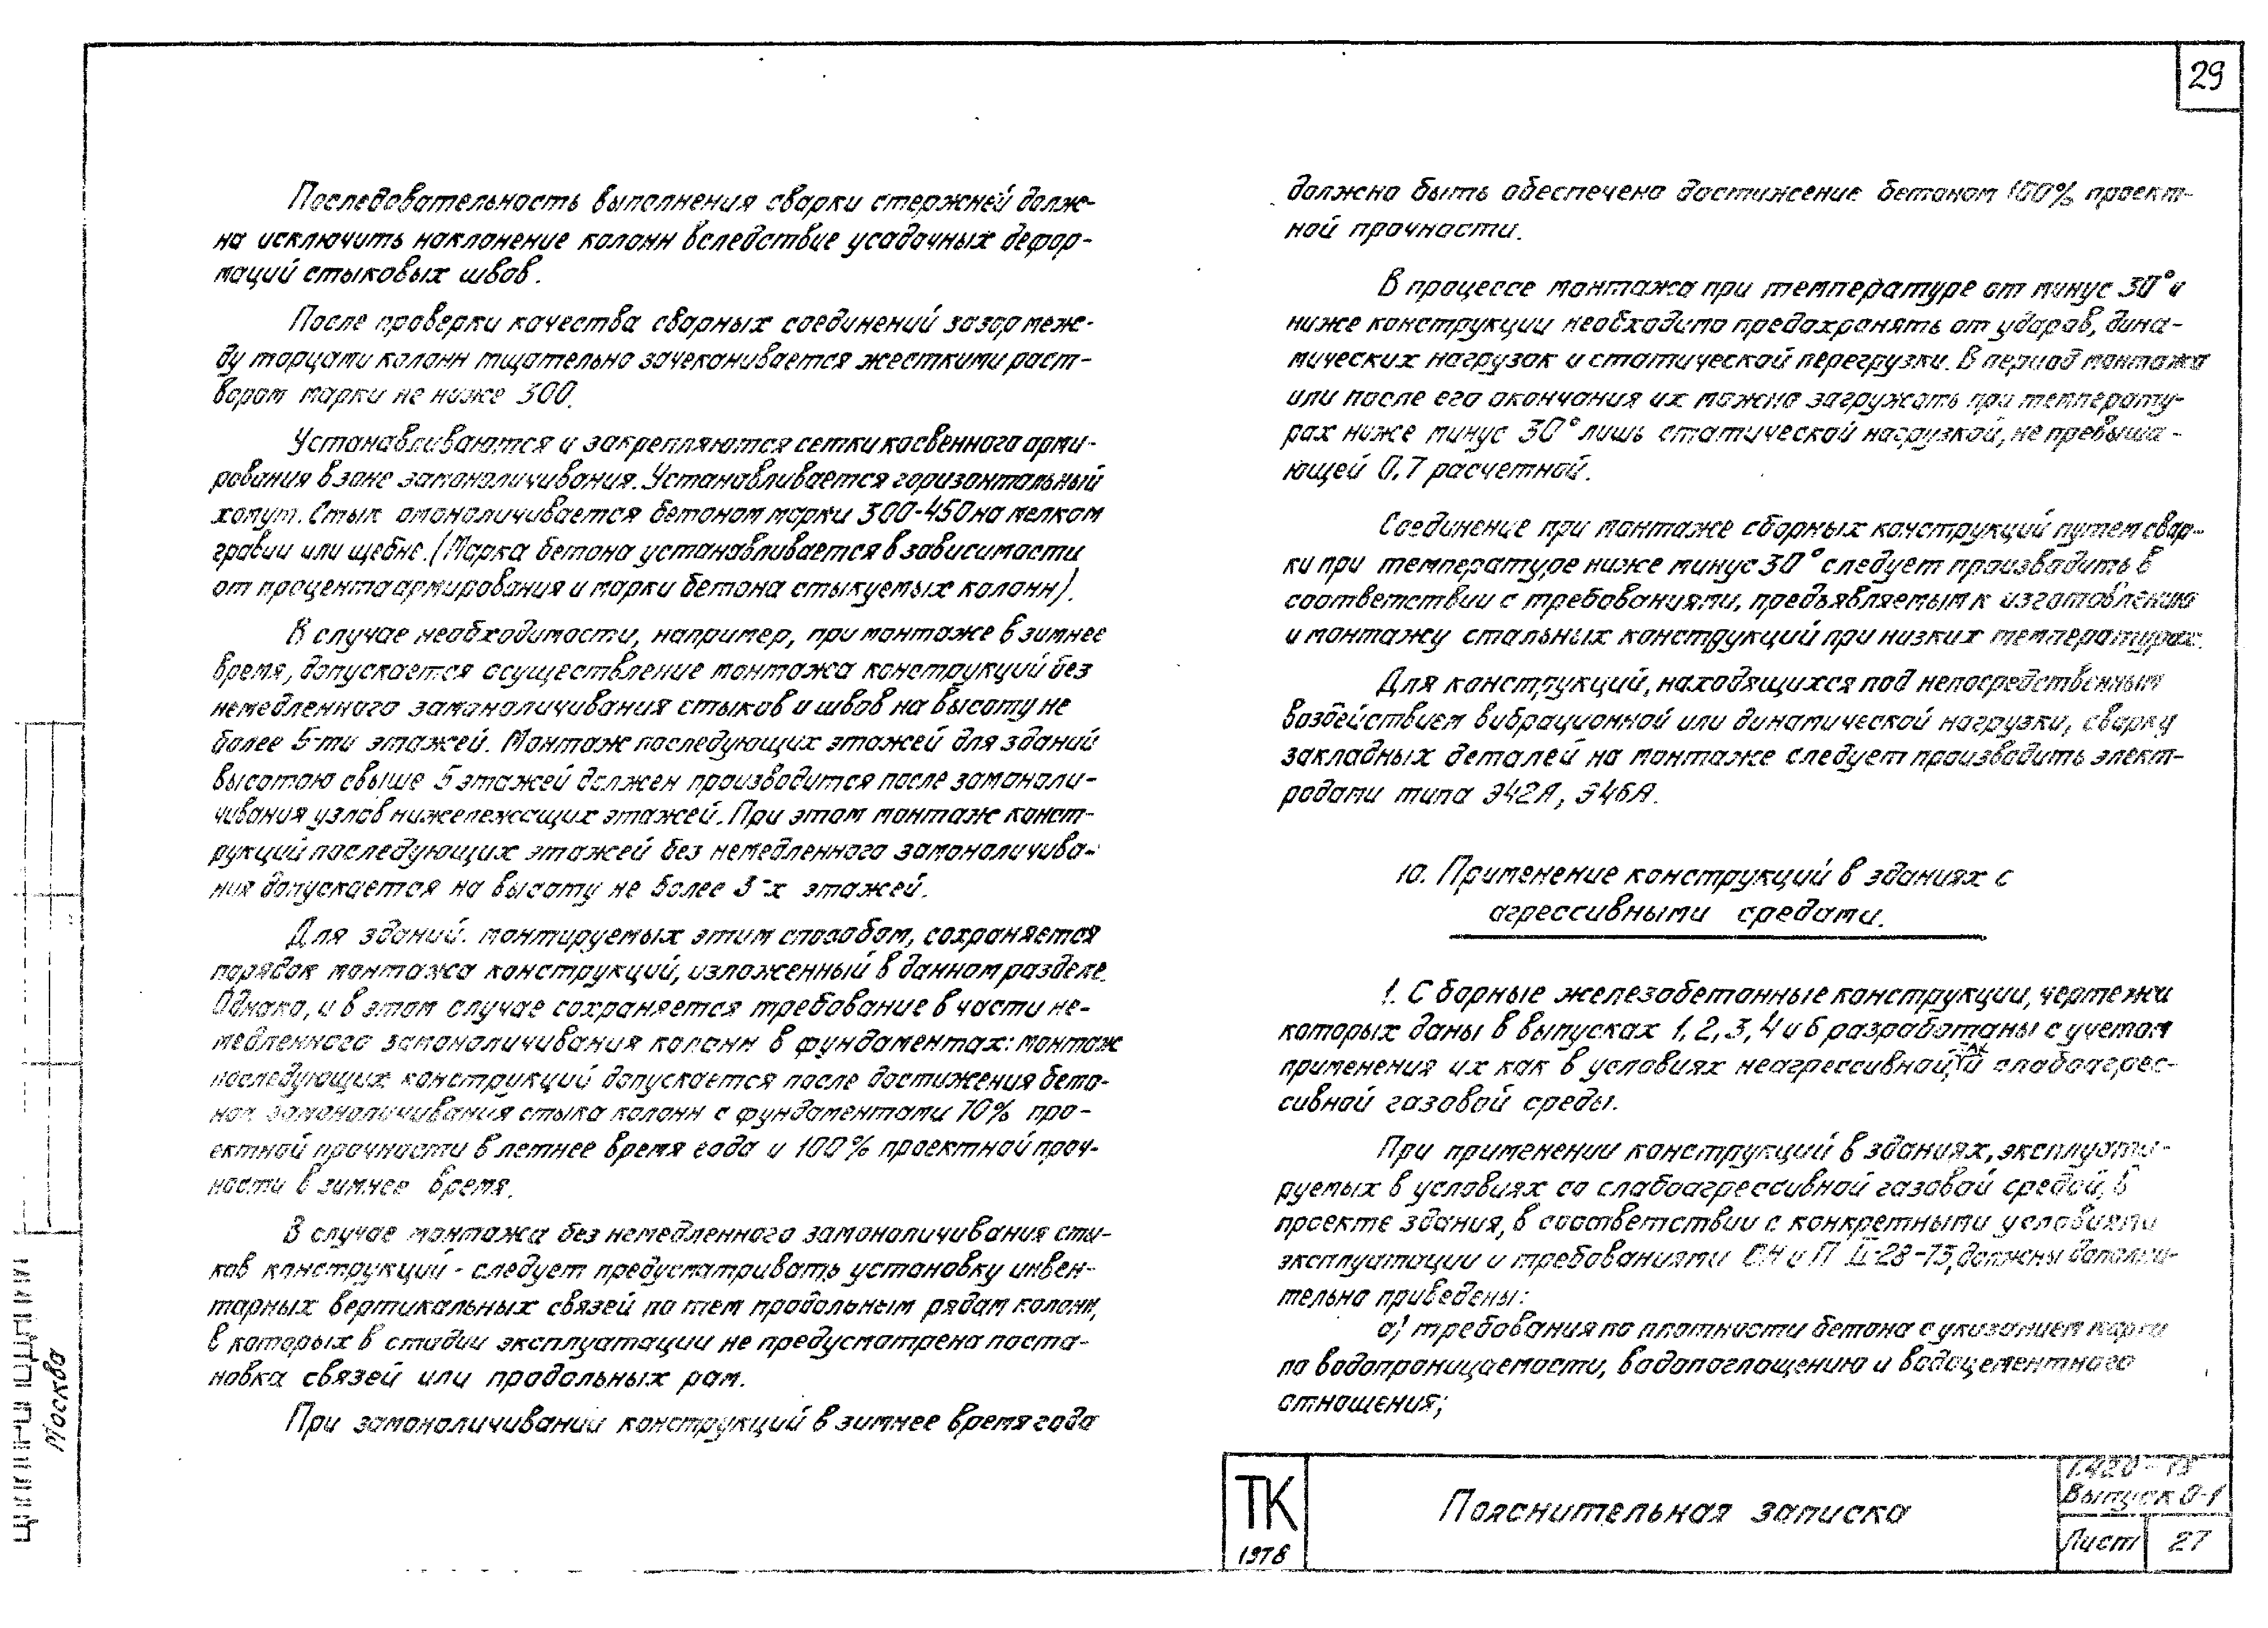 29
Последовательность выполнения сварки стержней долж-
на исключить наклонение колонн вследствие усадочных дефор-
маций стыковых швов.
После проверки качества сварных соединений зазор меж-
ду торцами колонн тщательно зачеканивается жесткими раст-
вором марки не ниже 300.
Устанавливаются и закрепляются сетки косвенного арми-
рования в зоне замоноличивания. Устанавливается горизонтальный
хомут. Стык омоноличивается бетоном марки 300-450 на мелком
гравии или щебне. (Марка бетона устанавливается в зависимости
от процента армирования и марки бетона стыкуемых колонн).
В случае необходимости, например, при монтаже в зимнее
время, допускается осуществление монтажа конструкций без
немедленного замоноличивания стыков и швов на высоту не
более 5-ти этажей. Монтаж последующих этажей для зданий
высотою свыше 5 этажей должен производится после замоноли-
чивания узлов нижележащих этажей. При этом монтаж конст-
рукций последующих этажей без немедленного замоноличива-
ния допускается на высоту не более 3-х этажей.
Для зданий, монтируемых этим способом, сохраняется
порядок монтажа конструкций, изложенный в данном разделе.
Однако, и в этом случае сохраняется требование в части не-
медленного замоноличивания колонн в фундаментах: монтаж
последующих конструкций допускается после достижения бето-
ном замоноличивания стыка колонн с фундаментами 70% про-
ектной прочности в летнее время года и 100% проектной проч-
ности в зимнее время.
В случае монтажа без немедленного замоноличивания сты-
ков конструкций - следует предусматривать установку инвен-
тарных вертикальных связей по тем продольным рядам колонн,
в которых в стадии эксплуатации не предусмотрена поста-
новка связей или продольных рам.
При замоноличивании конструкций в зимнее время года
должно быть обеспечено достижение бетоном 100% проект-
ной прочности.
В процессе монтажа при температуре от минус 30° и
ниже конструкции необходимо предохранять от ударов, дина-
мических нагрузок и статической перегрузки. В период монтажа
или после его окончания их можно загружать при температу-
рах ниже минус 30° лишь статической нагрузкой, не превыша-
ющей 0,7 расчетной.
Соединение при монтаже сборных конструкций путем свар-
ки при температуре ниже минус 30° следует производить в
соответствии с требованиями, предъявляемым к изготовлению
и монтажу стальных конструкций при низких температурах.
Для конструкций, находящихся под непосредственным
воздействием вибрационной или динамической нагрузки, сварку
закладных деталей на монтаже следует производить элект-
родами типа Э42А, Э46А.
10. Применение конструкций в зданиях с
агрессивными средами.
1. Сборные железобетонные конструкции, чертежи
которых даны в выпусках 1, 2, 3, 4 и 6 разработаны с учетом
применения их как в условиях неагрессивной, так и слабоагрес-
сивной газовой среды.
При применении конструкций в зданиях, эксплуати-
руемых в условиях со слабоагрессивной газовой средой, в
проекте здания, в соответствии с конкретными условиями
эксплуатации и требованиями СН и П II-28-73, должны дополни-
тельно приведены:
а) требования по плотности бетона с указанием марки
по водопроницаемости, водопоглощению и водоцементного
отношения;
ЦНИИПРОМЗДАНИЙ
Москва
ТК
1978
Пояснительная записка
1.420-
Выпуск 0-1
Лист 27